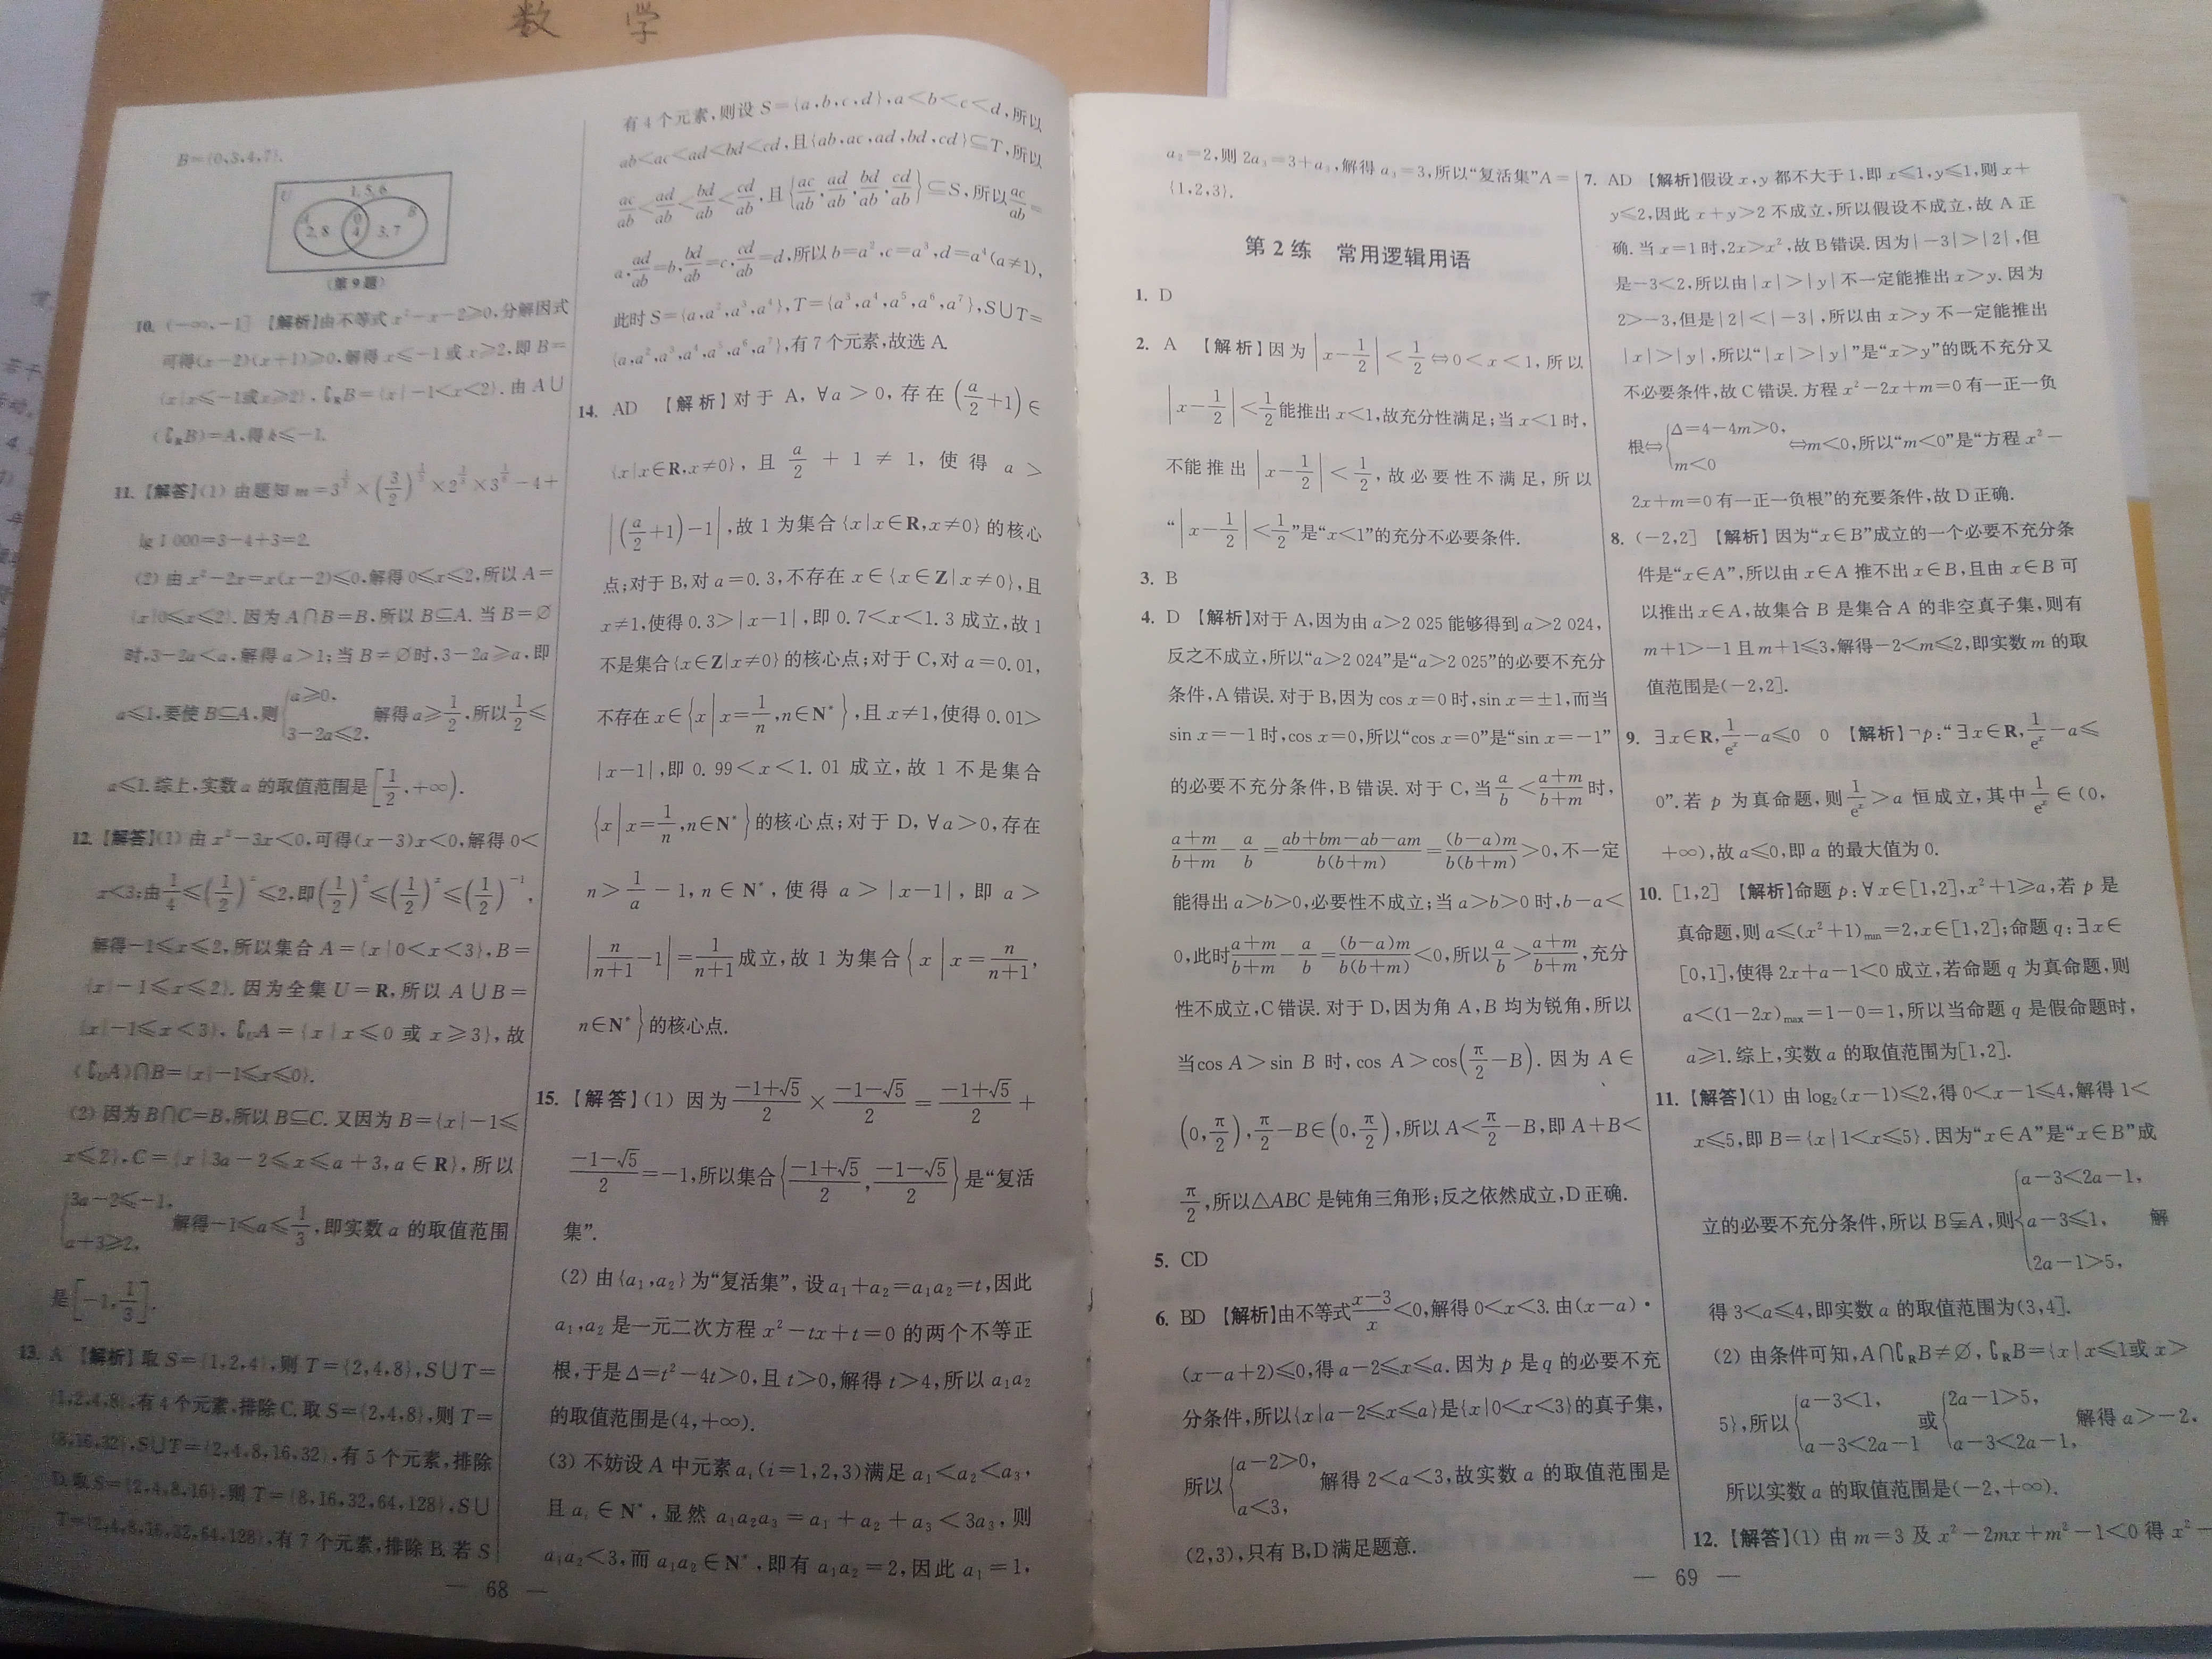 数 学
B={0,3,4,7}.
U
1,5,6
A
B
2,8
0
4
3,7
(第9题)
10. (-∞,-1] 【解析】由不等式 x²-x-2≥0,分解因式
可得(x-2)(x+1)≥0,解得 x≤-1 或 x≥2,即 B=
{x|x≤-1或x≥2}, ∁ᴿB={x|-1<x<2}. 由 A∪
(∁ᴿB)=A,得 k≤-1.
lg 1 000=3-4+3=2.
(2) 由 x²-2x=x(x-2)≤0,解得 0≤x≤2,所以 A=
{x|0≤x≤2}. 因为 A∩B=B,所以 B⊆A. 当 B=∅
时,3-2a<a,解得 a>1;当 B≠∅时,3-2a≥a,即
a≤1,要使 B⊆A,则{a≥0, 3-2a≤2, 解得 a≥1/2,所以1/2≤
a≤1. 综上,实数 a 的取值范围是[1/2,+∞).
12. 【解答】(1) 由 x²-3x<0,可得(x-3)x<0,解得 0<
x<3;由1/4≤(1/2)ˣ≤2,即(1/2)²≤(1/2)ˣ≤(1/2)⁻¹,
解得-1≤x≤2,所以集合 A={x|0<x<3},B=
{x|-1≤x≤2}. 因为全集 U=R,所以 A∪B=
{x|-1≤x<3}, ∁ᵤA={x|x≤0 或 x≥3},故
(∁ᵤA)∩B={x|-1≤x≤0}.
(2) 因为 B∩C=B,所以 B⊆C. 又因为 B={x|-1≤
x≤2},C={x|3a-2≤x≤a+3,a∈R},所以
{3a-2≤-1, a+3≥2, 解得-1≤a≤1/3,即实数 a 的取值范围
是[-1,1/3].
13. A 【解析】取 S={1,2,4},则 T={2,4,8},S∪T=
{1,2,4,8},有 4 个元素,排除 C. 取 S={2,4,8},则 T=
{8,16,32},S∪T={2,4,8,16,32},有 5 个元素,排除
D. 取 S={2,4,8,16},则 T={8,16,32,64,128},S∪
T={2,4,8,16,32,64,128},有 7 个元素,排除 B. 若 S
有 4 个元素,则设 S={a,b,c,d},a<b<c<d,所以
ab<ac<ad<bd<cd,且{ab,ac,ad,bd,cd}⊆T,所以
ac/ab<ad/ab<bd/ab<cd/ab,且{ac/ab,ad/ab,bd/ab,cd/ab}⊆S,所以ac/ab=
a,ad/ab=b,bd/ab=c,cd/ab=d,所以 b=a²,c=a³,d=a⁴(a≠1),
此时 S={a,a²,a³,a⁴},T={a³,a⁴,a⁵,a⁶,a⁷},S∪T=
{a,a²,a³,a⁴,a⁵,a⁶,a⁷},有 7 个元素,故选 A.
14. AD 【解析】对于 A,∀a>0,存在(a/2+1)∈
{x|x∈R,x≠0},且 a/2+1≠1,使得 a>
|(a/2+1)-1|,故 1 为集合{x|x∈R,x≠0}的核心
点;对于 B,对 a=0.3,不存在 x∈{x∈Z|x≠0},且
x≠1,使得 0.3>|x-1|,即 0.7<x<1.3 成立,故 1
不是集合{x∈Z|x≠0}的核心点;对于 C,对 a=0.01,
不存在 x∈{x|x=1/n,n∈N*},且 x≠1,使得 0.01>
|x-1|,即 0.99<x<1.01 成立,故 1 不是集合
{x|x=1/n,n∈N*}的核心点;对于 D,∀a>0,存在
n>1/a-1,n∈N*,使得 a>|x-1|,即 a>
|n/(n+1)-1|=1/(n+1)成立,故 1 为集合{x|x=n/(n+1),
n∈N*}的核心点.
15. 【解答】(1) 因为(-1+√5)/2×(-1-√5)/2=(-1+√5)/2+
(-1-√5)/2=-1,所以集合{(-1+√5)/2,(-1-√5)/2}是“复活
集”.
(2) 由{a₁,a₂}为“复活集”,设 a₁+a₂=a₁a₂=t,因此
a₁,a₂ 是一元二次方程 x²-tx+t=0 的两个不等正
根,于是 Δ=t²-4t>0,且 t>0,解得 t>4,所以 a₁a₂
的取值范围是(4,+∞).
(3) 不妨设 A 中元素 aᵢ(i=1,2,3)满足 a₁<a₂<a₃,
且 aᵢ∈N*,显然 a₁a₂a₃=a₁+a₂+a₃<3a₃,则
a₁a₂<3,而 a₁a₂∈N*,即有 a₁a₂=2,因此 a₁=1,
— 68 —
a₂=2,则 2a₃=3+a₃,解得 a₃=3,所以“复活集”A=
{1,2,3}.
第 2 练 常用逻辑用语
1. D
2. A 【解析】因为|x-1/2|<1/2⇔0<x<1,所以
|x-1/2|<1/2能推出 x<1,故充分性满足;当 x<1 时,
不能推出|x-1/2|<1/2,故必要性不满足,所以
“|x-1/2|<1/2”是“x<1”的充分不必要条件.
3. B
4. D 【解析】对于 A,因为由 a>2 025 能够得到 a>2 024,
反之不成立,所以“a>2 024”是“a>2 025”的必要不充分
条件,A 错误. 对于 B,因为 cos x=0 时,sin x=±1,而当
sin x=-1 时,cos x=0,所以“cos x=0”是“sin x=-1”
的必要不充分条件,B 错误. 对于 C,当a/b<(a+m)/(b+m)时,
(a+m)/(b+m)-a/b=(ab+bm-ab-am)/(b(b+m))=((b-a)m)/(b(b+m))>0,不一定
能得出 a>b>0,必要性不成立;当 a>b>0 时,b-a<
0,此时(a+m)/(b+m)-a/b=((b-a)m)/(b(b+m))<0,所以a/b>(a+m)/(b+m),充分
性不成立,C 错误. 对于 D,因为角 A,B 均为锐角,所以
当cos A>sin B 时,cos A>cos(π/2-B). 因为 A∈
(0,π/2),π/2-B∈(0,π/2),所以 A<π/2-B,即 A+B<
π/2,所以△ABC 是钝角三角形;反之依然成立,D 正确.
5. CD
6. BD 【解析】由不等式(x-3)/x<0,解得 0<x<3. 由(x-a)·
(x-a+2)≤0,得 a-2≤x≤a. 因为 p 是 q 的必要不充
分条件,所以{x|a-2≤x≤a}是{x|0<x<3}的真子集,
所以{a-2>0, a<3, 解得 2<a<3,故实数 a 的取值范围是
(2,3),只有 B,D 满足题意.
7. AD 【解析】假设 x,y 都不大于 1,即 x≤1,y≤1,则 x+
y≤2,因此 x+y>2 不成立,所以假设不成立,故 A 正
确. 当 x=1 时,2x>x²,故 B 错误. 因为|-3|>|2|,但
是-3<2,所以由|x|>|y|不一定能推出 x>y. 因为
2>-3,但是|2|<|-3|,所以由 x>y 不一定能推出
|x|>|y|,所以“|x|>|y|”是“x>y”的既不充分又
不必要条件,故 C 错误. 方程 x²-2x+m=0 有一正一负
根⇔{Δ=4-4m>0, m<0 ⇔m<0,所以“m<0”是“方程 x²-
2x+m=0 有一正一负根”的充要条件,故 D 正确.
8. (-2,2] 【解析】因为“x∈B”成立的一个必要不充分条
件是“x∈A”,所以由 x∈A 推不出 x∈B,且由 x∈B 可
以推出 x∈A,故集合 B 是集合 A 的非空真子集,则有
m+1>-1 且 m+1≤3,解得-2<m≤2,即实数 m 的取
值范围是(-2,2].
9. ∃x∈R,1/eˣ-a≤0 0 【解析】¬p:“∃x∈R,1/eˣ-a≤
0”. 若 p 为真命题,则1/eˣ>a 恒成立,其中1/eˣ∈(0,
+∞),故 a≤0,即 a 的最大值为 0.
10. [1,2] 【解析】命题 p:∀x∈[1,2],x²+1≥a,若 p 是
真命题,则 a≤(x²+1)min=2,x∈[1,2];命题 q:∃x∈
[0,1],使得 2x+a-1<0 成立,若命题 q 为真命题,则
a<(1-2x)max=1-0=1,所以当命题 q 是假命题时,
a≥1. 综上,实数 a 的取值范围为[1,2].
11. 【解答】(1) 由 log₂(x-1)≤2,得 0<x-1≤4,解得 1<
x≤5,即 B={x|1<x≤5}. 因为“x∈A”是“x∈B”成
立的必要不充分条件,所以 B⫋A,则{a-3<2a-1, a-3≤1, 2a-1>5, 解
得 3<a≤4,即实数 a 的取值范围为(3,4].
(2) 由条件可知,A∩∁ᴿB≠∅, ∁ᴿB={x|x≤1或 x>
5},所以{a-3<1, a-3<2a-1 或{2a-1>5, a-3<2a-1, 解得 a>-2,
所以实数 a 的取值范围是(-2,+∞).
12. 【解答】(1) 由 m=3 及 x²-2mx+m²-1<0 得 x²-
— 69 —